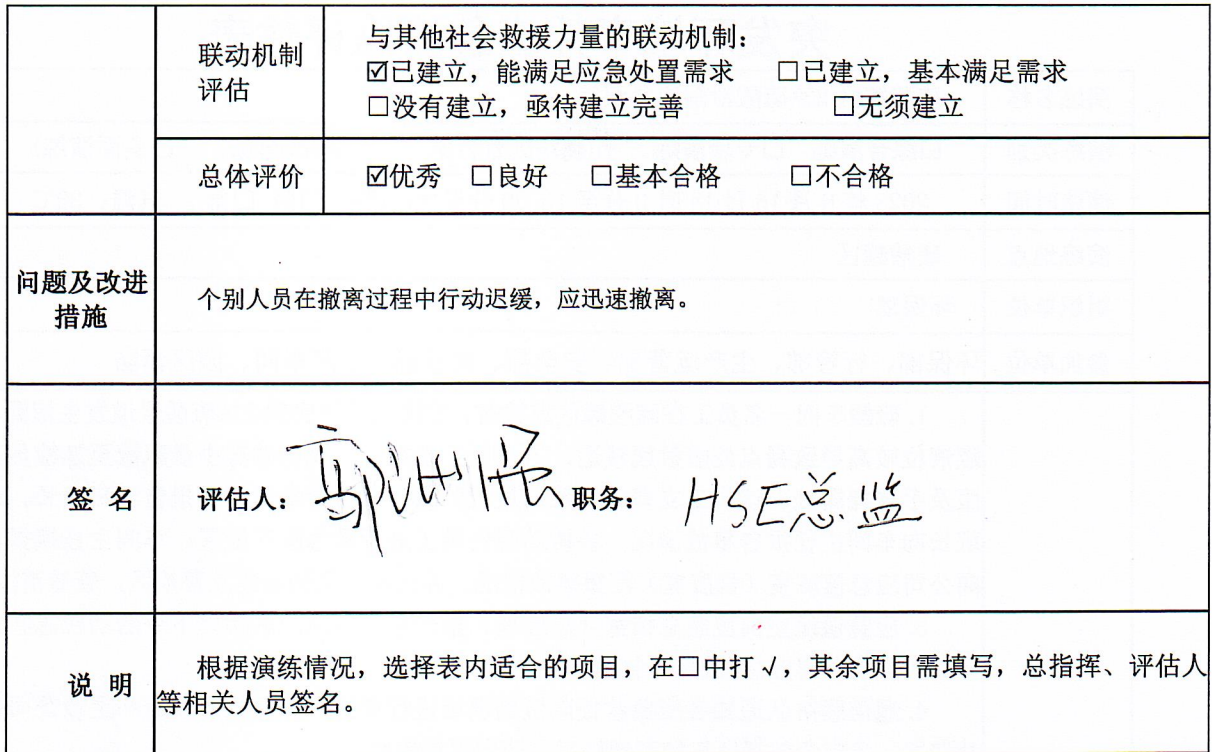 联动机制
评估
与其他社会救援力量的联动机制：
☑已建立，能满足应急处置需求 □已建立，基本满足需求
□没有建立，亟待建立完善 □无须建立
总体评价
☑优秀 □良好 □基本合格 □不合格
问题及改进
措施
个别人员在撤离过程中行动迟缓，应迅速撤离。
签 名
评估人：
职务：HSE总监
说 明
根据演练情况，选择表内适合的项目，在□中打√，其余项目需填写，总指挥、评估人
等相关人员签名。